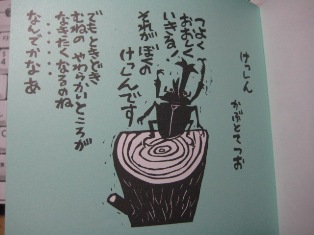 けっしん
かぶとてつお
つよく
おおしく
いきる
それがぼくの
けっしんです
でもときどき
むねの やわらかいところが
なきたくなるのね
・・・・・
なんでかなあ